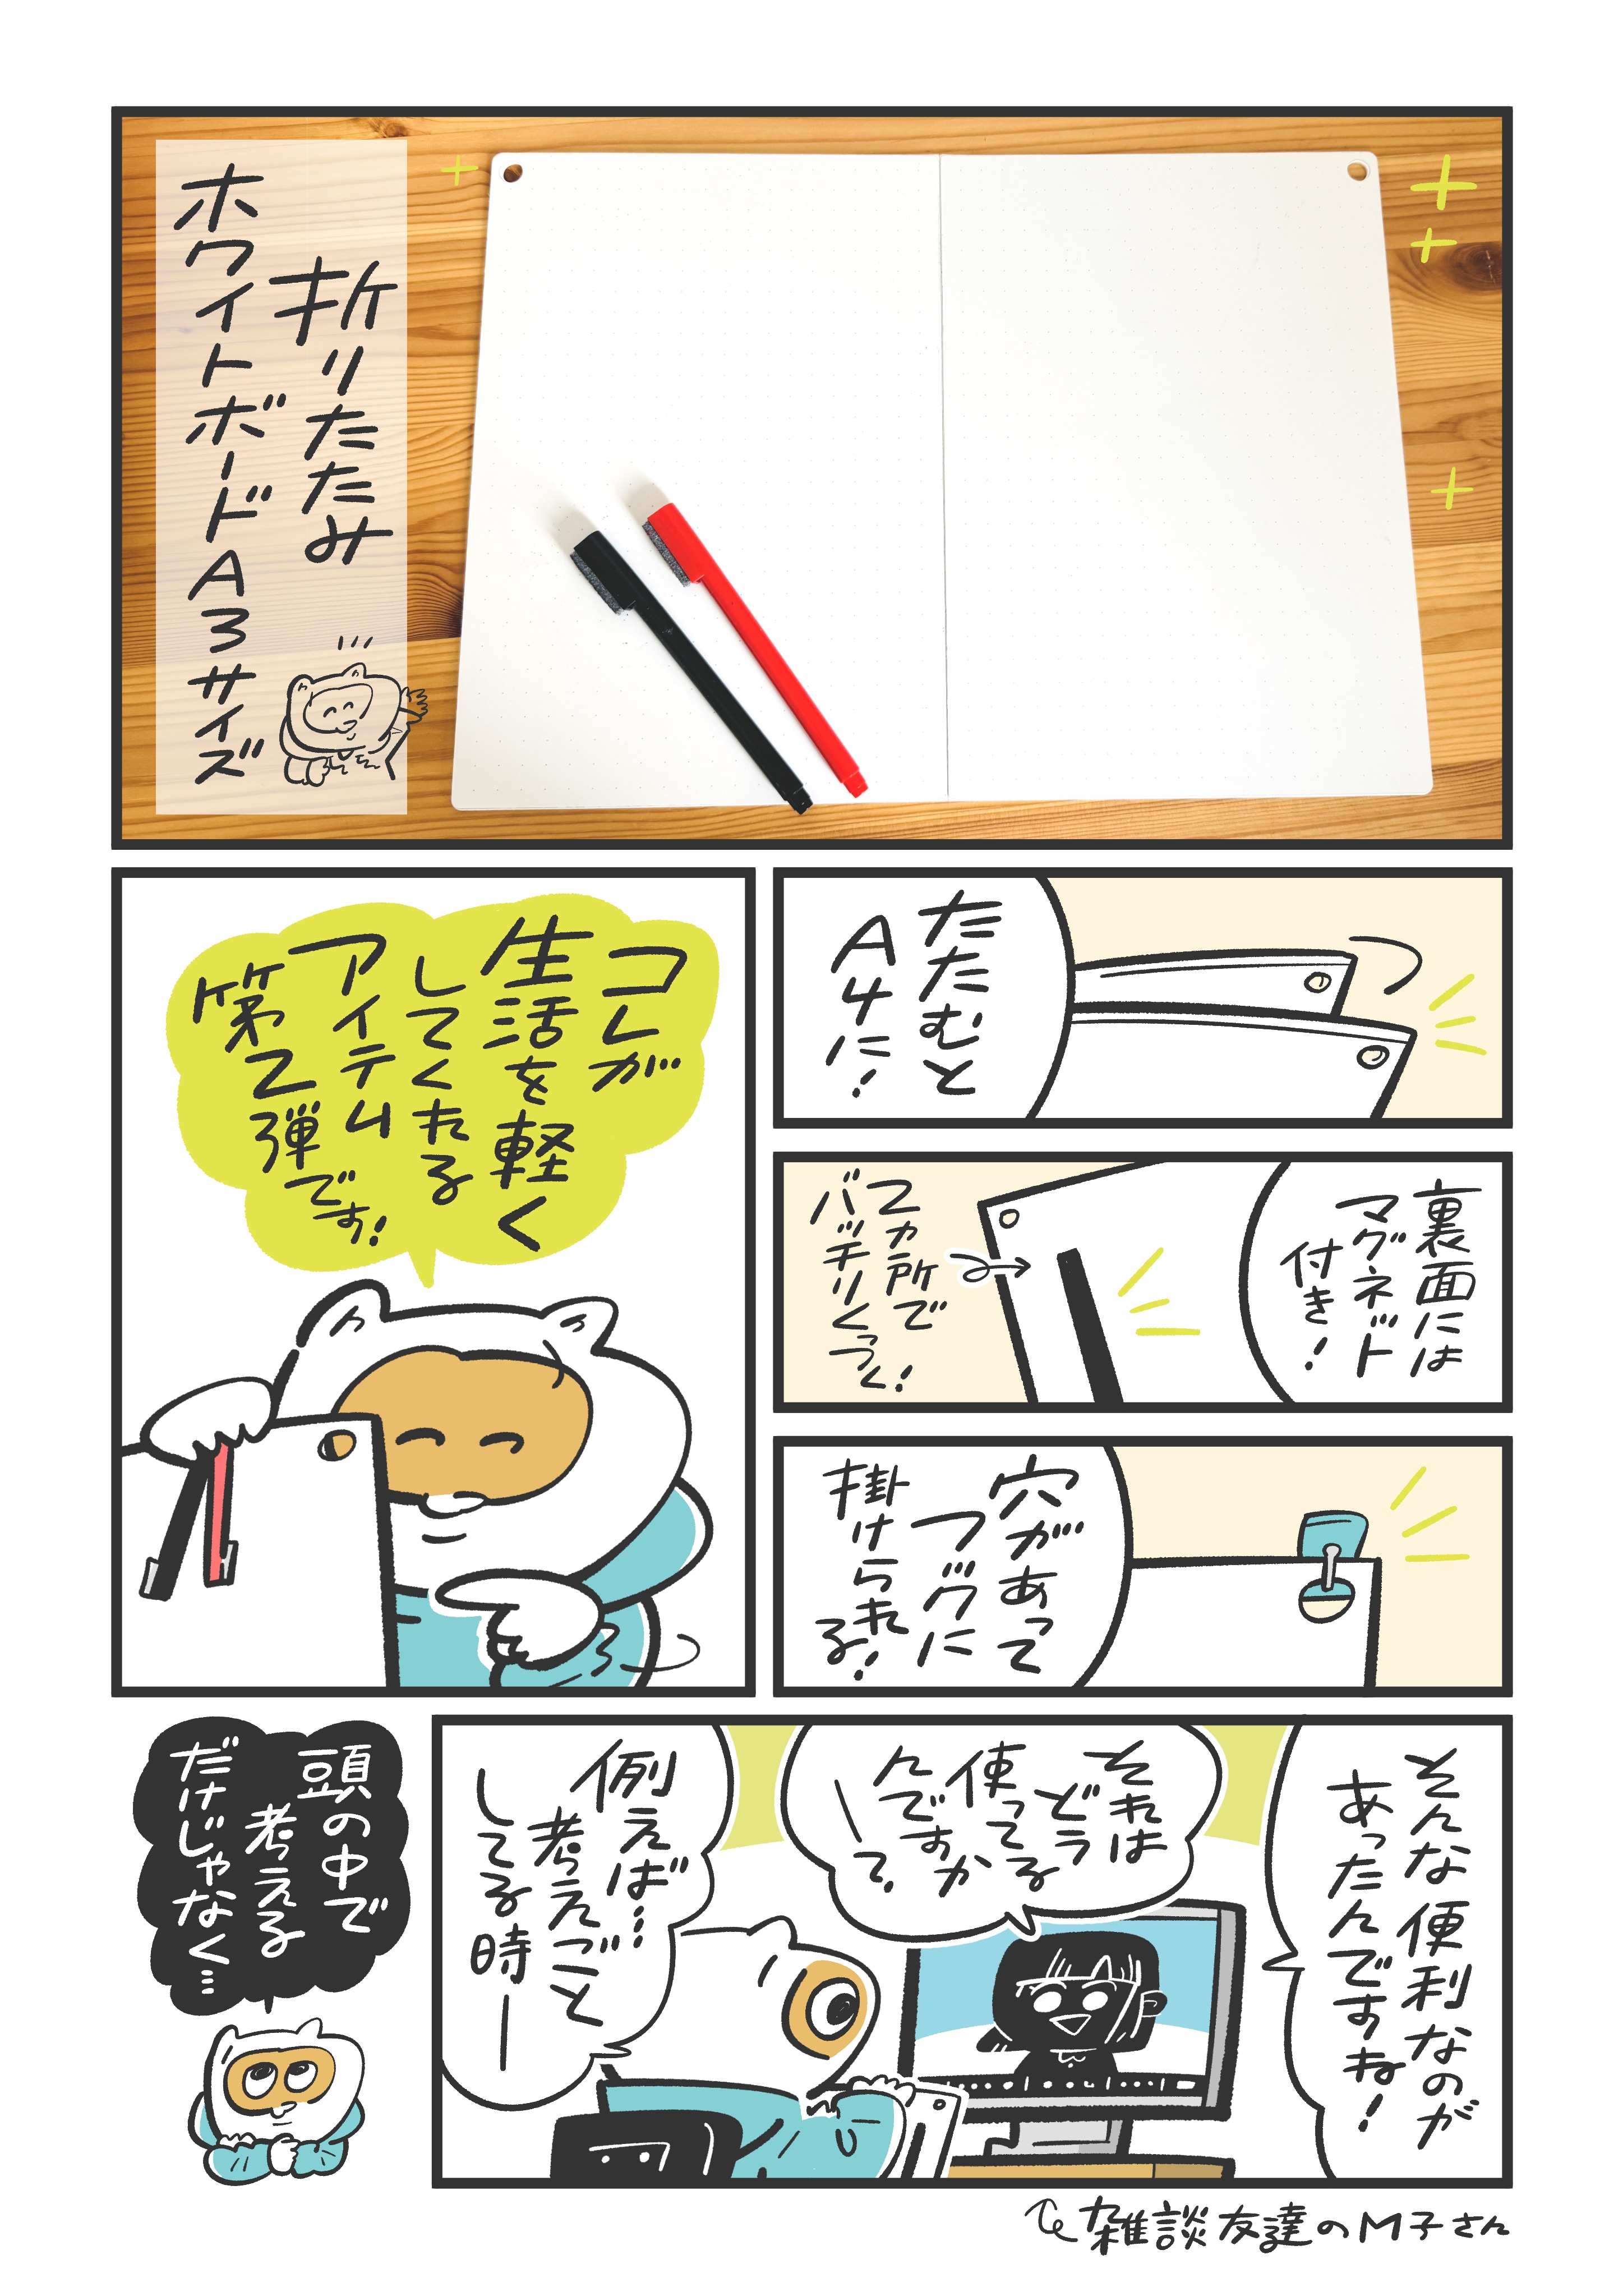 折りたたみ
ホワイトボードA3サイズ
たたむと
A4に！
裏面には
マグネット
付き！
2ヵ所で
バッチリくっつく！
穴があって
フックに
掛けられる！
コレが
生活を軽く
してくれる
アイテム
第2弾です！
そんな便利なのが
あったんですね！
それは
どう
使ってる
んですか
〜？
例えば…
考えごと
してる時ー
雑談友達のM子さん
頭の中で
考える
だけじゃなく…